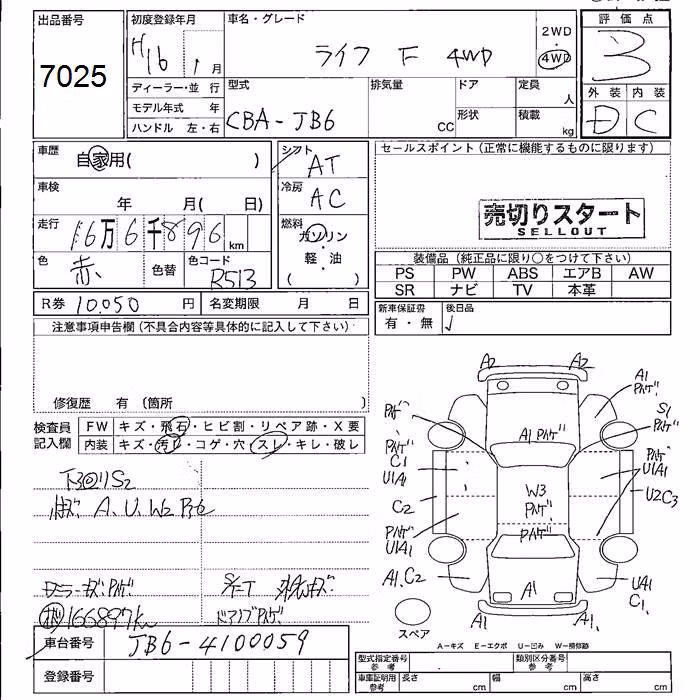 出品番号 初度登録年月 車名・グレード 2WD 評価点
7025 H16 1月 ライフ F 4WD 4WD 3
ディーラー・並行 型式 排気量 ドア 定員 人 外装 内装
モデル年式 年 CBA-JB6 形状 積載 D C
ハンドル 左・右 CC kg
車歴 自家用( ) シフト AT セールスポイント(正常に機能するものに限ります)
車検 年 月( 日) 冷房 AC
売切りスタート
SELLOUT
走行 16万6千896 km 燃料 ガソリン
軽・油
( )
色 赤 色替 色コード R513
装備品(純正品に限り○をつけて下さい)
PS PW ABS エアB AW
SR ナビ TV 本革
R券 10,050円 名変期限 月 日
新車保証書 後日品
有・無
注意事項申告欄(不具合内容等具体的に記入して下さい)
修復歴 有(箇所 )
検査員記入欄 FW キズ・飛石・ヒビ割・リペア跡・X要
内装 キズ・汚れ・コゲ・穴・スレ・キレ・破レ
下回りS2
A.U.W2
166897km
A2 A2
A1
S1
A1
C1
U1A1
U1A1
U2C3
C2
W3
U1A1
A1.C2
A1
UA1
C1.
A1 A1.
スペア
A-キズ E-エクボ U-凹み W-補修跡
車台番号 JB6-4100059
登録番号
型式指定番号 参考 類別区分番号 参考
車庫証明用 参考 長さ cm 幅 cm 高さ cm